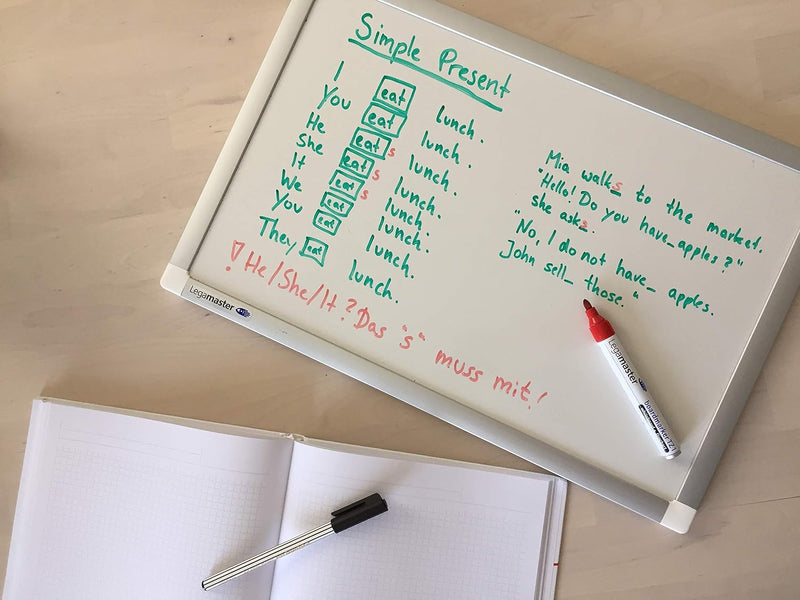 Simple Present
I eat lunch.
You eat lunch.
He eats lunch.
She eats lunch.
It eats lunch.
We eat lunch.
You eat lunch.
They eat lunch.
! He/She/It? Das "s" muss mit!
Mia walks to the market.
"Hello! Do you have_ apples?"
she asks.
"No, I do not have_ apples.
John sell_ those."
Legamaster
Legamaster boardmarker TZ1